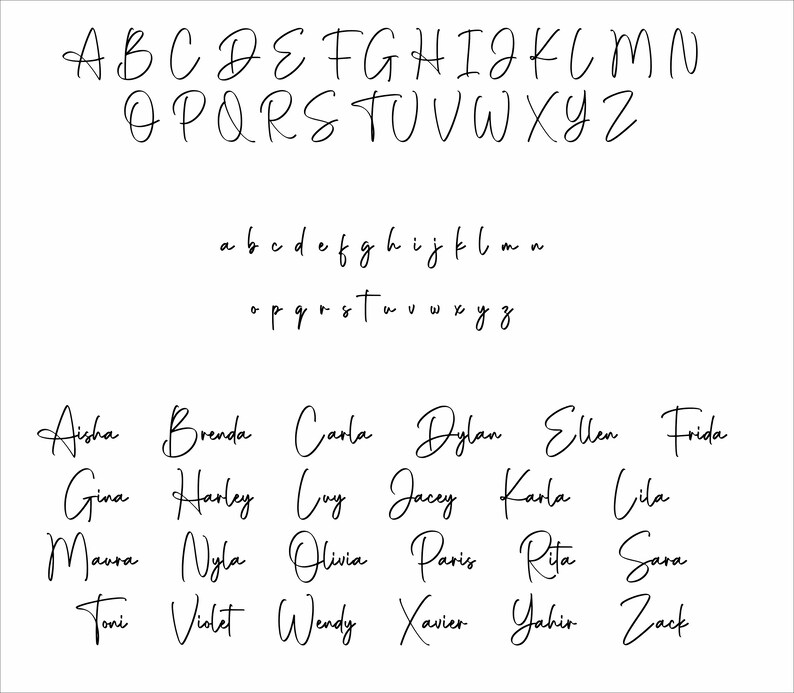 A B C D E F G H I J K L M N
O P Q R S T U V W X Y Z
a b c d e f g h i j k l m n
o p q r s t u v w x y z
Aisha Brenda Carla Dylan Ellen Frida
Gina Harley Luy Jacey Karla Lila
Maura Nyla Olivia Paris Rita Sara
Toni Violet Wendy Xavier Yahir Zack